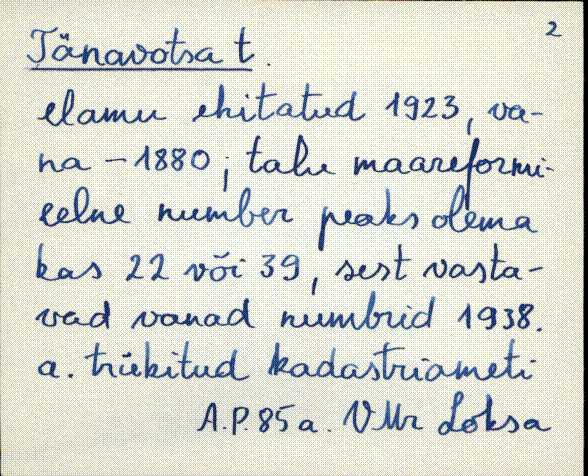 2
Tänavotsa t.
elamu ehitatud 1923, va-
na - 1880; talu maareformi-
eelne number peaks olema
kas 22 või 39, sest vasta-
vad vanad numbrid 1938.
a. trükitud kadastriameti
A.P. 85 a. VMr Loksa